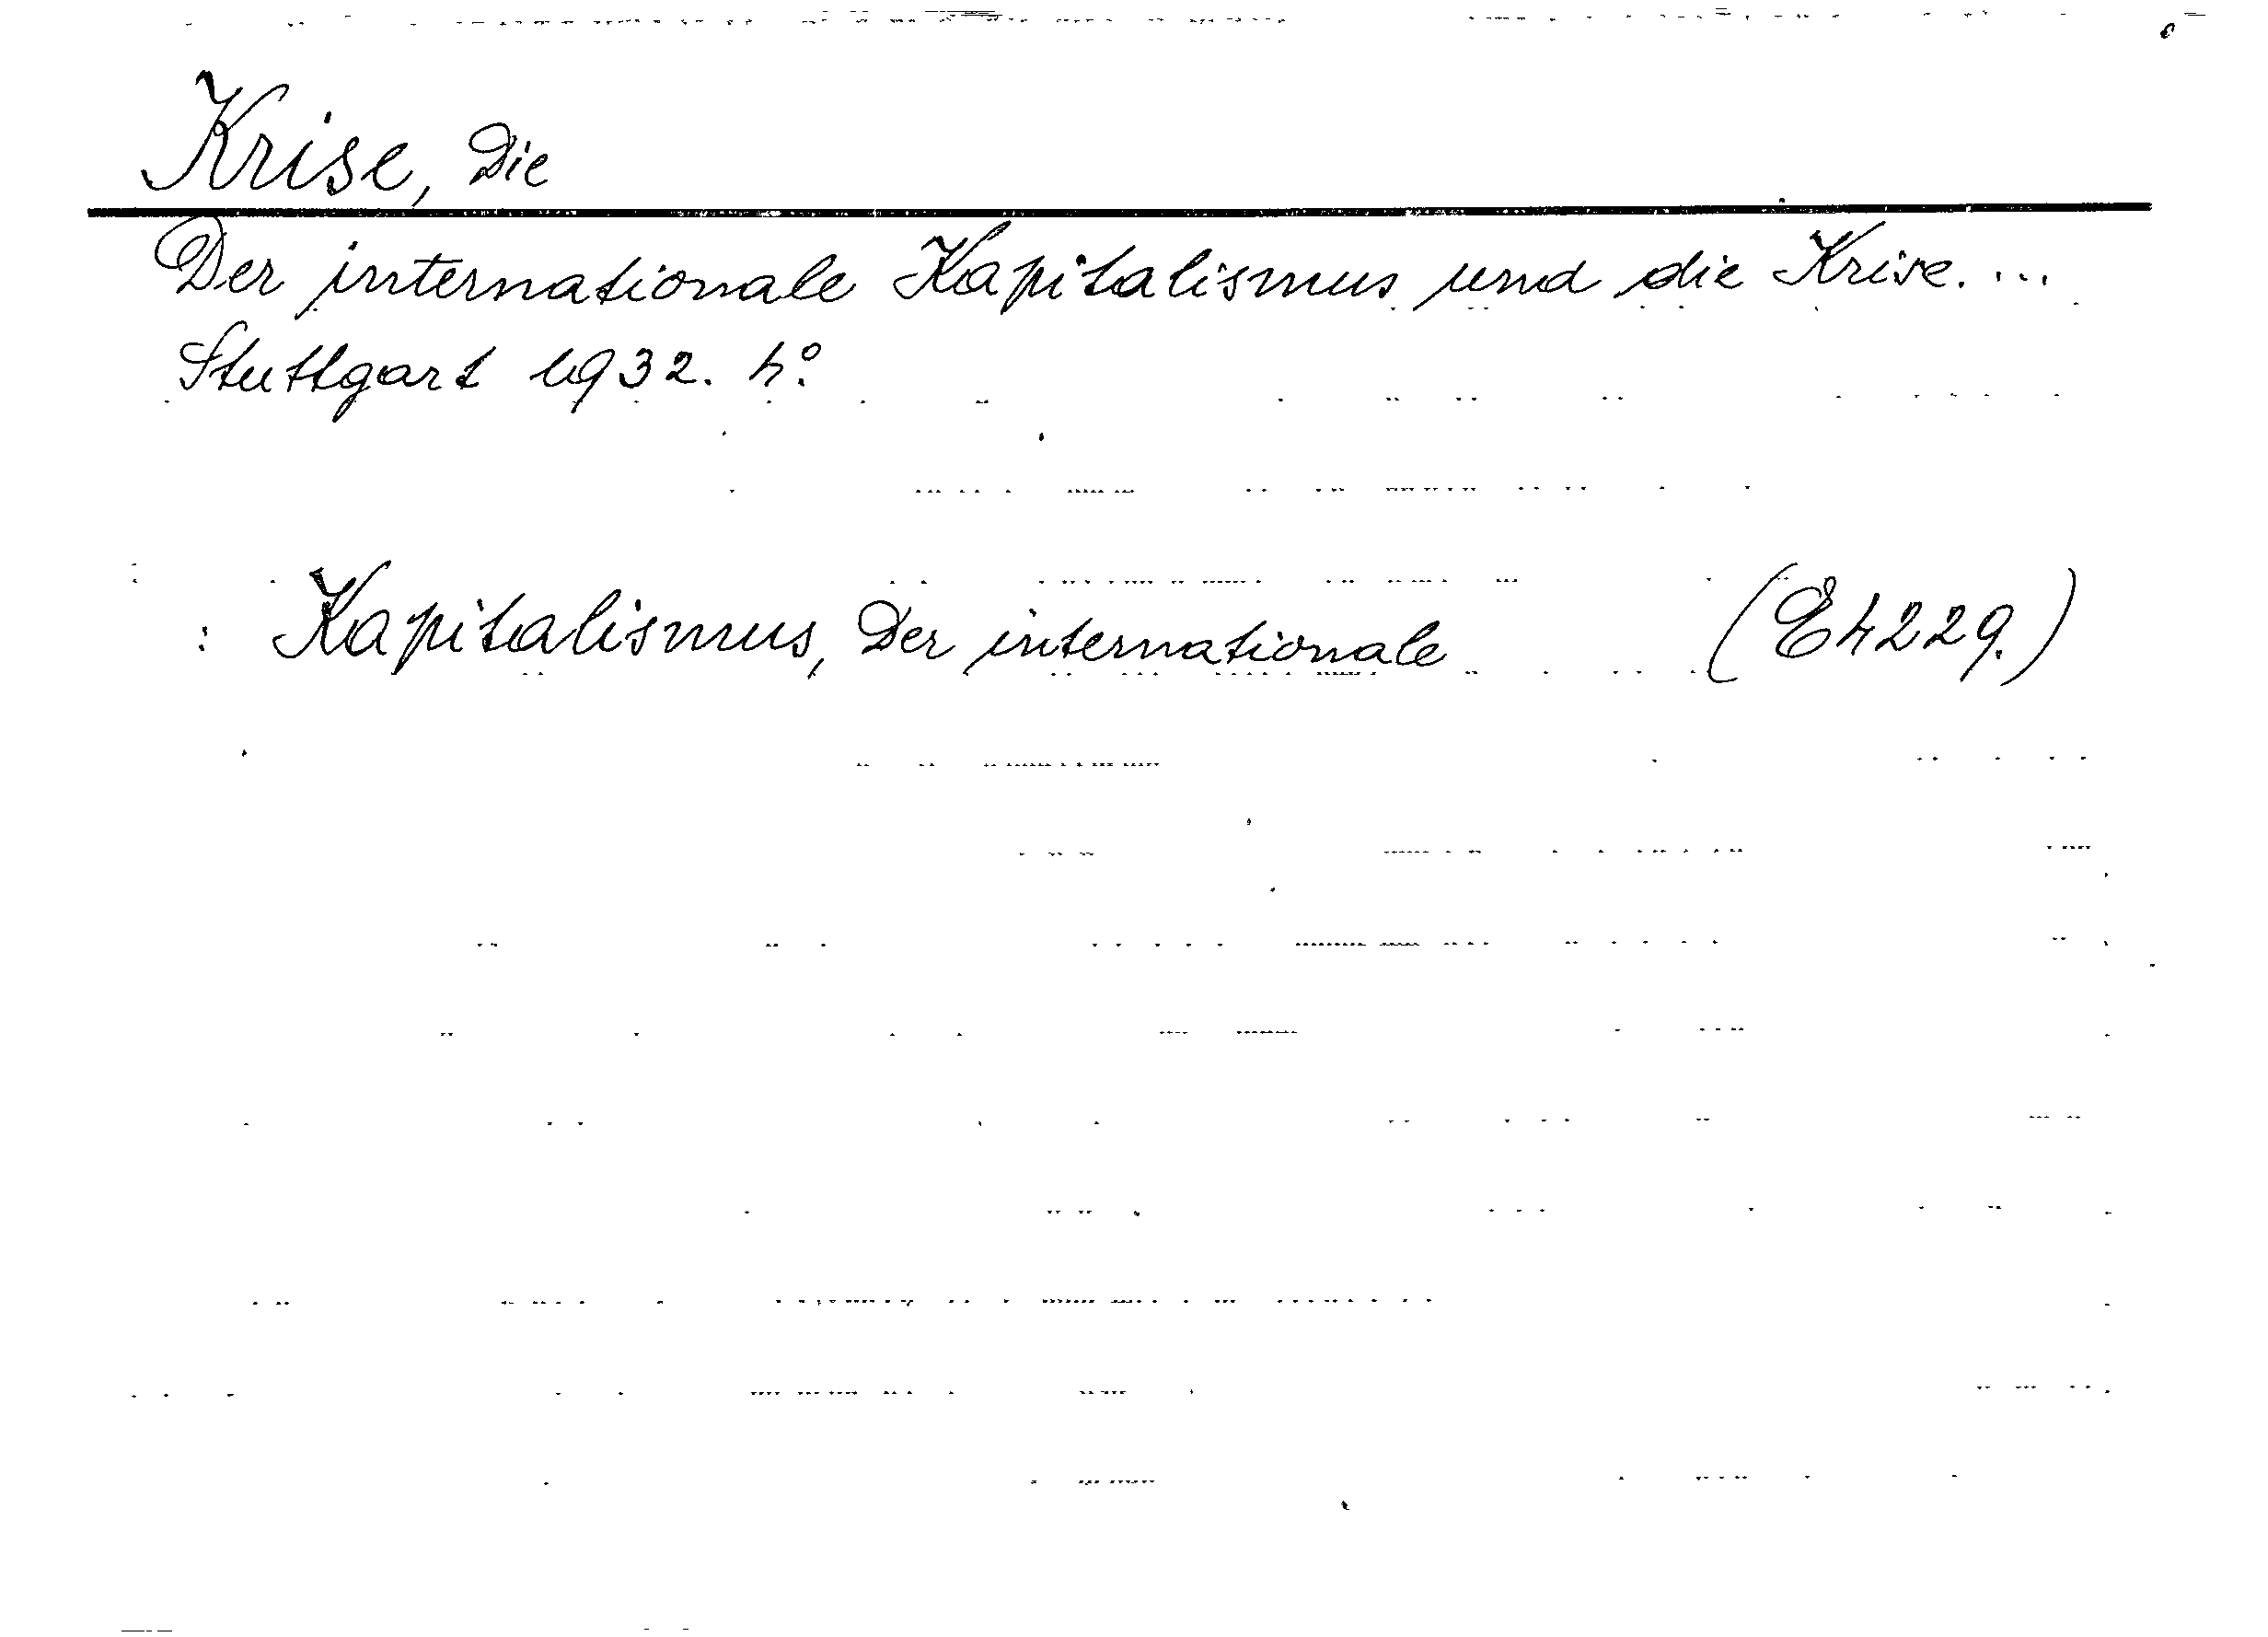 Krise, Die
Der internationale Kapitalismus und die Krise. ...
Stuttgart 1932. 4°.
: Kapitalismus, Der internationale (E4229.)